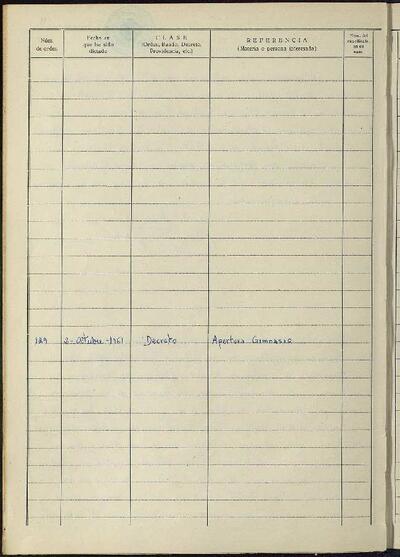 Núm. de orden
Fecha en que ha sido dictado
CLASE
(Orden, Bando, Decreto, Providencia, etc.)
REFERENCIA
(Materia o persona interesada)
Núm. del
129 2-octubre-1961 Decreto Apertura Gimnasio